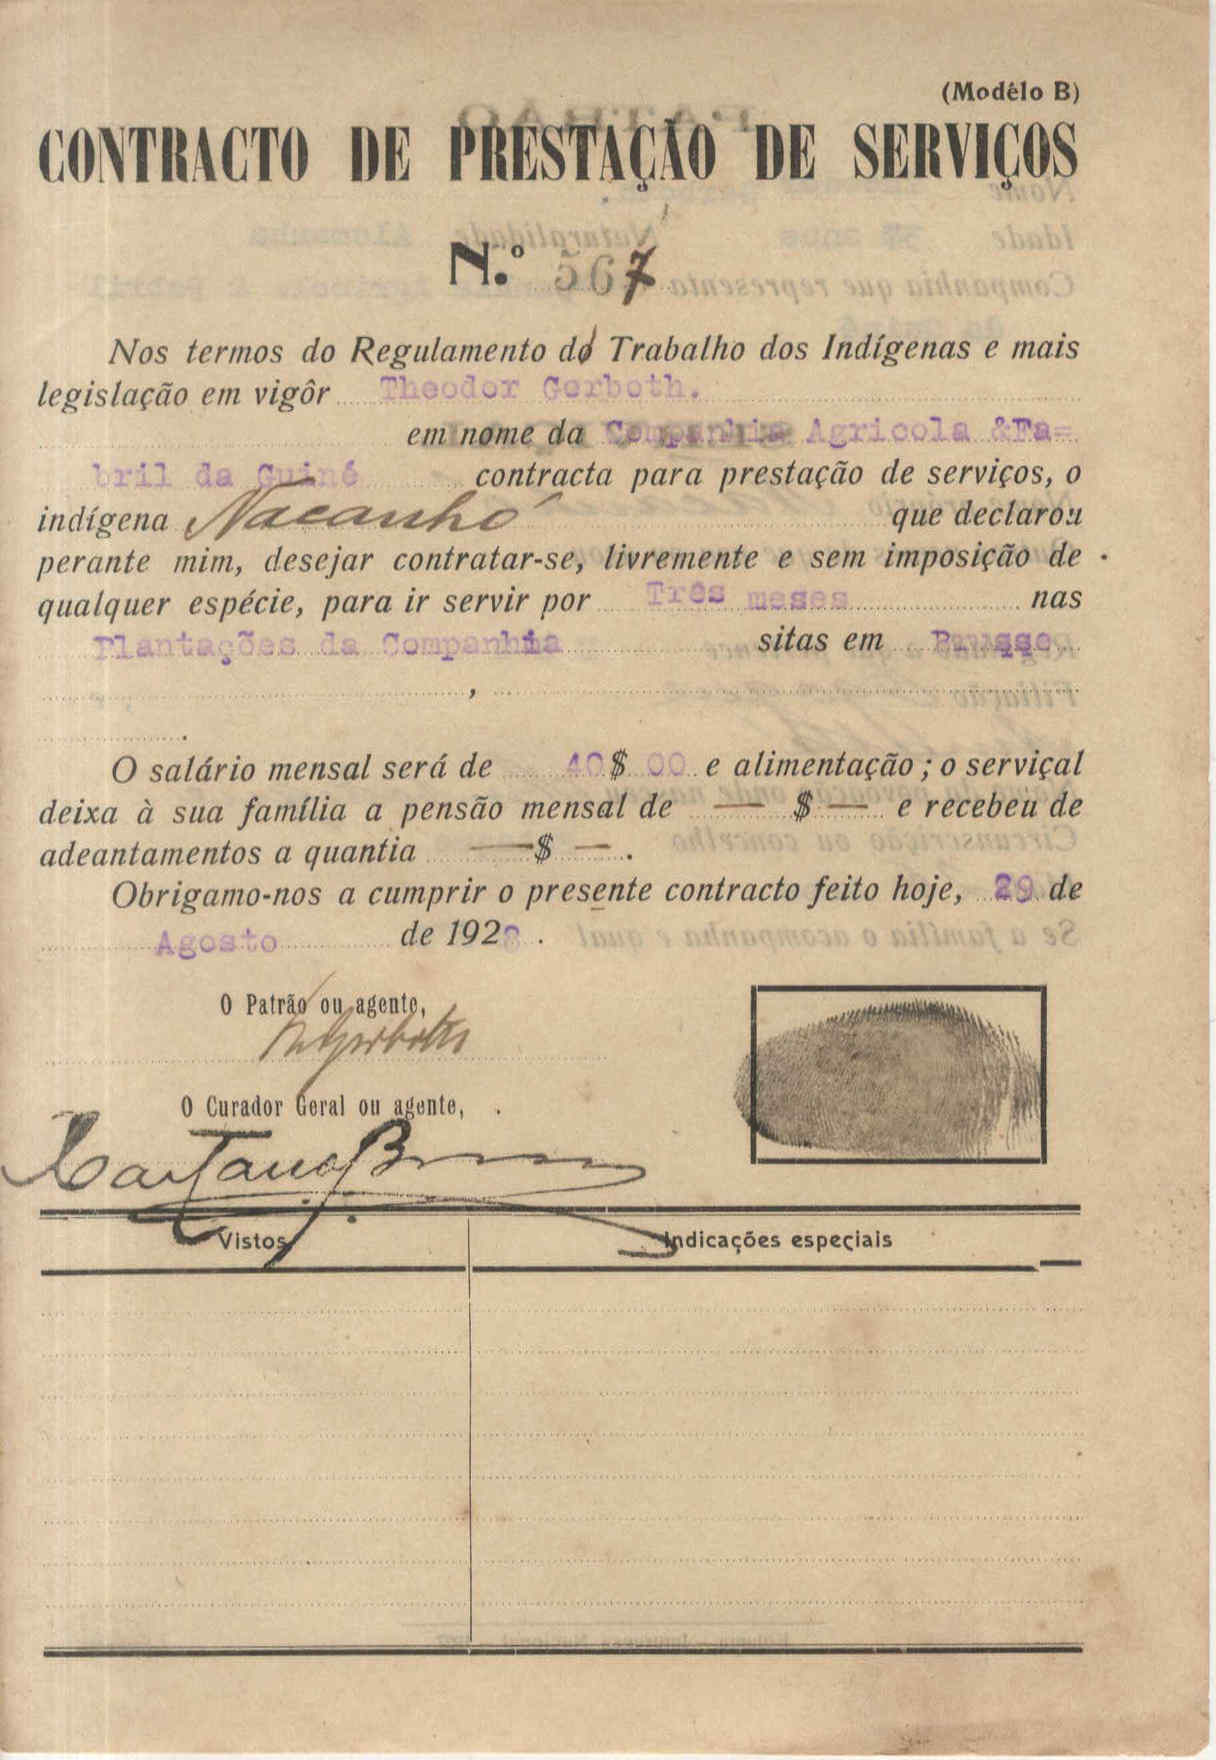 (Modêlo B)
CONTRACTO DE PRESTAÇÃO DE SERVIÇOS
N.º 567
Nos termos do Regulamento do Trabalho dos Indígenas e mais
legislação em vigôr Theodor Gerboth.
em nome da Companhia Agricola &Fa=
bril da Guiné contracta para prestação de serviços, o
indígena Nacanhó que declarou
perante mim, desejar contratar-se, livremente e sem imposição de
qualquer espécie, para ir servir por Três meses nas
Plantações da Companhia sitas em
,
.
O salário mensal será de 40$00 e alimentação; o serviçal
deixa à sua família a pensão mensal de — $ — e recebeu de
adeantamentos a quantia — $ — .
Obrigamo-nos a cumprir o presente contracto feito hoje, 29 de
Agosto de 1928.
O Patrão ou agente,
Gerboth
O Curador Geral ou agente,
Caetano
Vistos
Indicações especiais